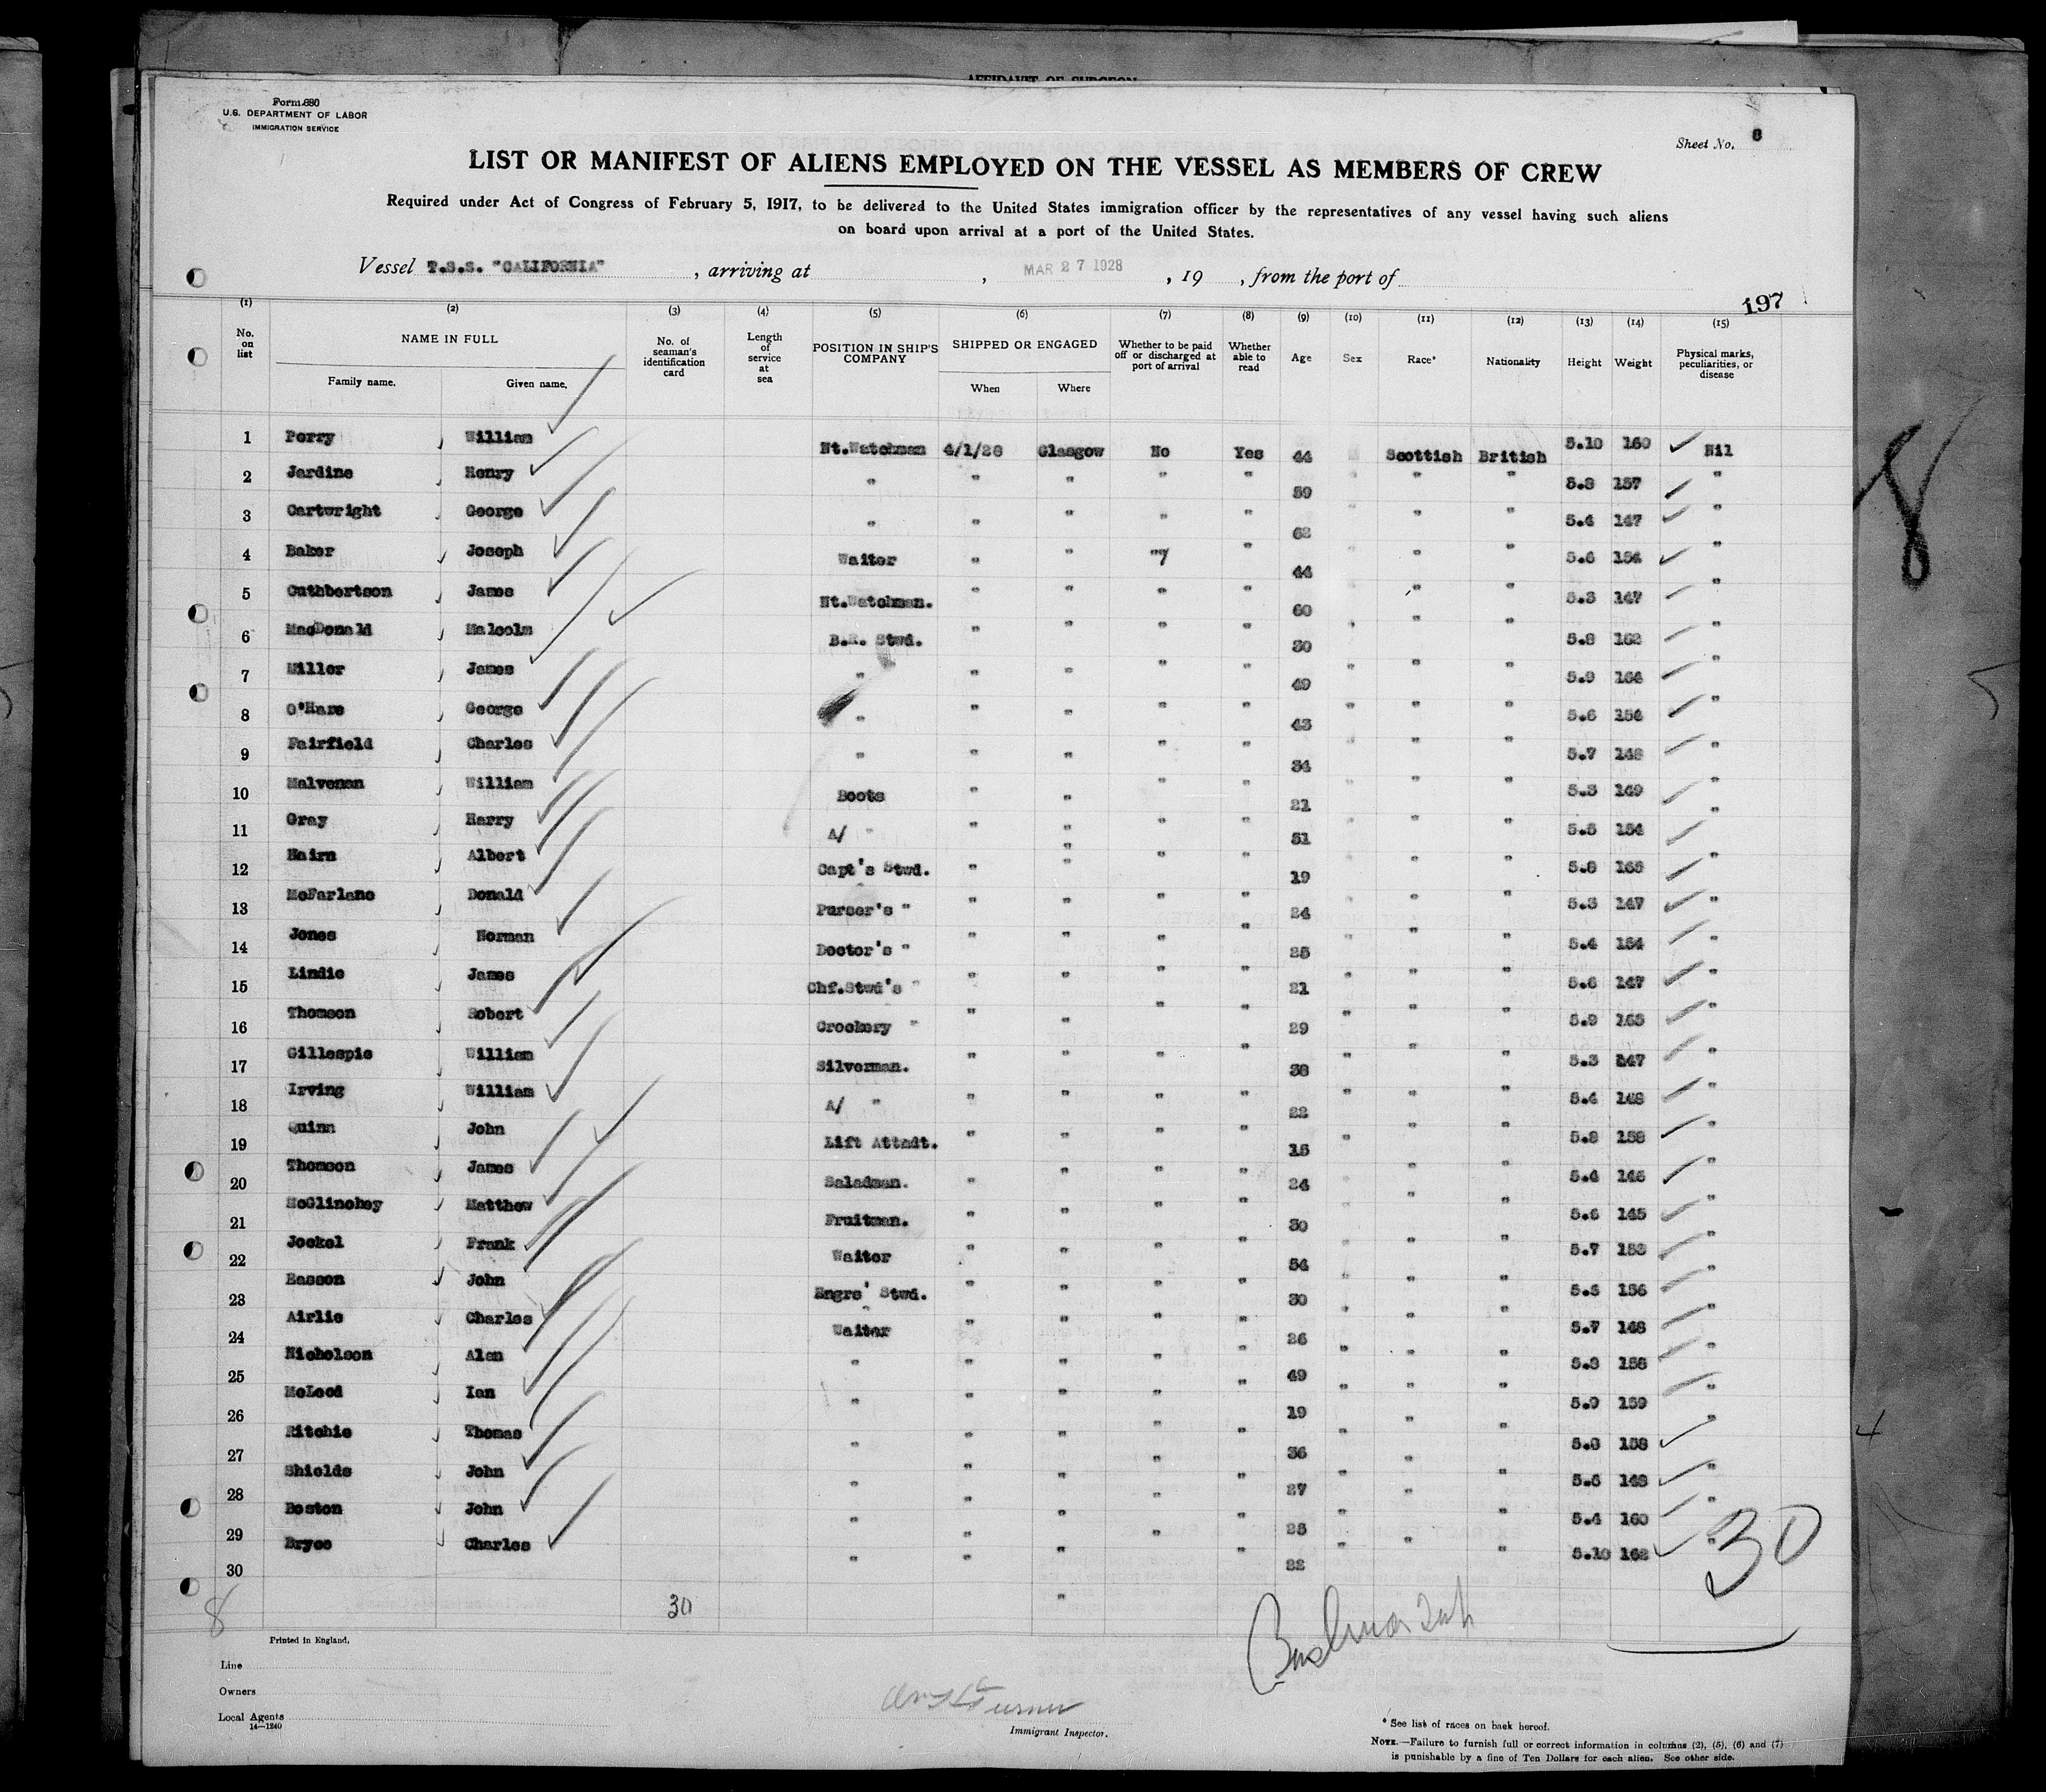 AFFIDAVIT OF SURGEON
Form 680
U.S. DEPARTMENT OF LABOR
IMMIGRATION SERVICE
Sheet No. 8
LIST OR MANIFEST OF ALIENS EMPLOYED ON THE VESSEL AS MEMBERS OF CREW
Required under Act of Congress of February 5, 1917, to be delivered to the United States immigration officer by the representatives of any vessel having such aliens
on board upon arrival at a port of the United States.
Vessel T.S.S. "CALIFORNIA" , arriving at , MAR 27 1928 , 19 , from the port of
197
(1) (2) (3) (4) (5) (6) (7) (8) (9) (10) (11) (12) (13) (14) (15)
No. on list NAME IN FULL Family name. Given name. No. of seaman's identification card Length of service at sea POSITION IN SHIP'S COMPANY SHIPPED OR ENGAGED When Where Whether to be paid off or discharged at port of arrival Whether able to read Age Sex Race* Nationality Height Weight Physical marks, peculiarities, or disease
1 Perry William Nt.Watchman 4/1/28 Glasgow No Yes 44 Scottish British 5.10 160 Nil
2 Jardine Henry " " " " " 59 " " 5.8 157 "
3 Cartwright George " " " " " 62 " " 5.4 147 "
4 Baker Joseph Waiter " " " " 44 " " 5.6 154 "
5 Cuthbertson James Nt.Watchman. " " " " 60 " " 5.3 147 "
6 MacDonald Malcolm B.R. Stwd. " " " " 30 " " " 5.8 162 "
7 Miller James " " " " " 49 " " " 5.9 164 "
8 O'Hare George " " " " " 43 " " " 5.6 154 "
9 Fairfield Charles " " " " " 34 " " " 5.7 148 "
10 Malvenan William Boots " " " " 21 " " " 5.3 149 "
11 Gray Harry A/ " " " " " 51 " " " 5.5 154 "
12 Nairn Albert Capt's Stwd. " " " " 19 " " " 5.8 168 "
13 McFarlane Donald Purser's " " " " " 24 " " " 5.3 147 "
14 Jones Norman Doctor's " " " " " 25 " " " 5.4 154
15 Lindie James Chf.Stwd's " " " " " 21 " " " 5.6 147 "
16 Thomson Robert Crockery " " " " " 29 " " " 5.9 165 "
17 Gillespie William Silverman. " " " " 38 " " " 5.3 147 "
18 Irving William A/ " " " " " 22 " " " 5.4 148 "
19 Quinn John Lift Attndt. " " " " 15 " " " 5.8 158 "
20 Thomson James Saladman. " " " " 24 " " 5.4 146 "
21 McGlinchey Matthew Fruitman. " " " " 30 " " " 5.6 145 "
22 Jockel Frank Waiter " " " " 54 " " " 5.7 153 "
23 Easson John Engrs' Stwd. " " " " 30 " " " 5.5 156 "
24 Airlie Charles Waiter " " " " 26 " " " 5.7 148 "
25 Nicholson Alan " " " " " 49 " " " 5.8 158
26 McLeod Ian " " " " " 19 " " " 5.9 159 "
27 Ritchie Thomas " " " " " 36 " " " 5.8 158 "
28 Shields John " " " " " 27 " " " 5.6 148 "
29 Boston John " " " " " 25 " " " 5.4 160 "
30 Bryce Charles " " " " " 22 " " " 5.10 162 "
8
30
30
8
Printed in England.
Line
Owners
Local Agents
14—1240
Turner
Immigrant Inspector.
* See list of races on back hereof.
NOTE.—Failure to furnish full or correct information in columns (2), (5), (6) and (7)
is punishable by a fine of Ten Dollars for each alien. See other side.